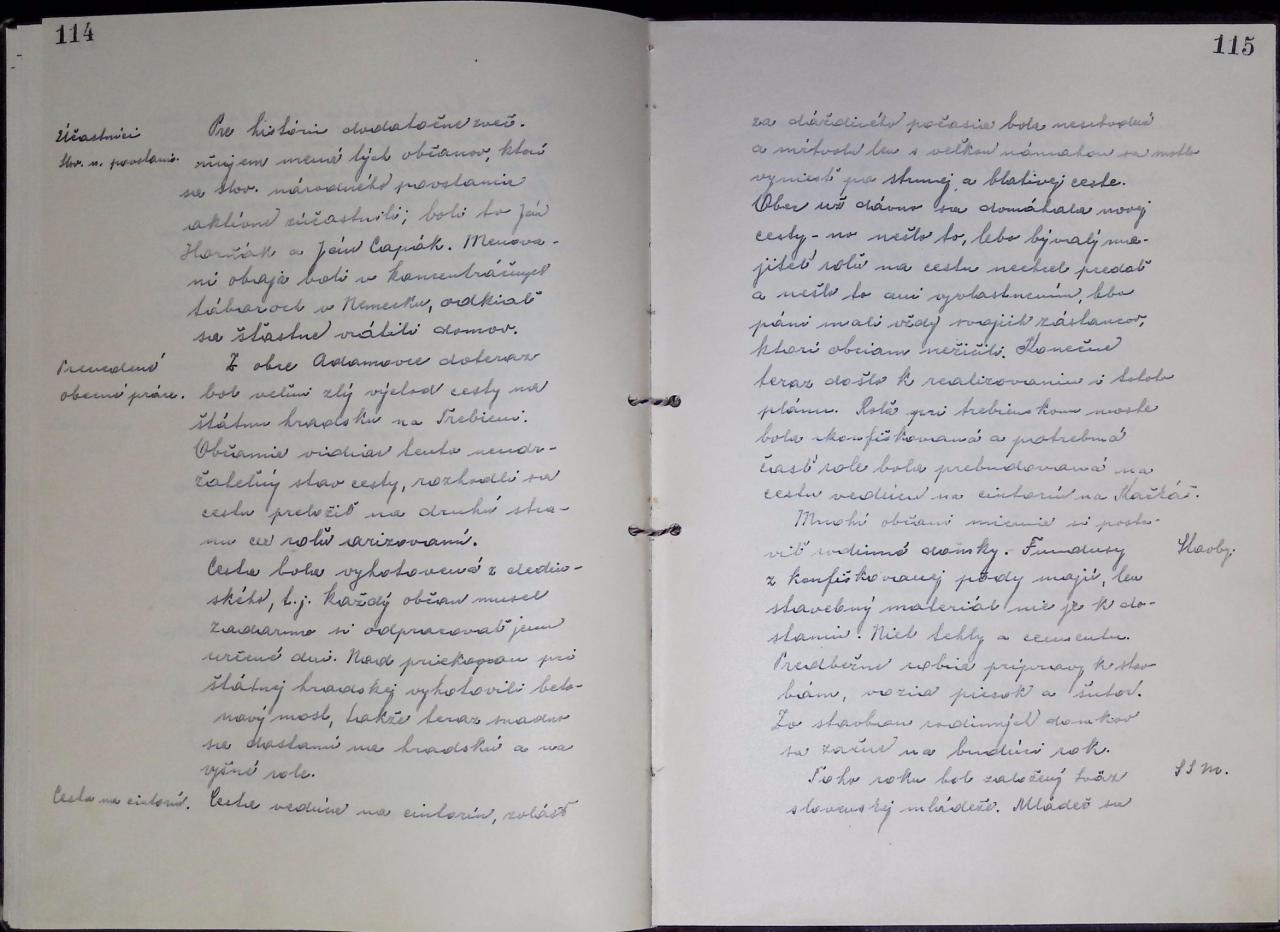 114
Účastníci
slov. n. povstania.
Pre históriu dodatočne zveč-
ňujem mená tých občanov, ktorí
sa slov. národného povstania
aktívne zúčastnili; boli to Ján
Horňák a Ján Capák. Menova-
ní obaja boli v koncentračných
táboroch v Nemecku, odkiaľ
sa šťastne vrátili domov.
Prevedené
obecné práce.
Z obce Adamovce doteraz
bol veľmi zlý východ cesty na
štátnu hradskú na Trebieni.
Občania vidiac tento neudr-
žateľný stav cesty, rozhodli sa
cestu preložiť na druhú stra-
nu cez roľu arizovanú.
Cesta bola vyhotovená z dedin-
ského, t.j. každý občan musel
zadarmo si odpracovať jemu
určené dni. Nad priekopou pri
štátnej hradskej vyhotovili beto-
nový most, takže teraz snadno
sa dostanú na hradskú a na
vyšné role.
Cesta na cintorín.
Cesta vedúca na cintorín, zvlášť
115
za dáždivého počasia bola neschodná
a mŕtvolu len s veľkou námahou sa mohlo
vyniesť po strmej a blativej ceste.
Obec už dávno sa domáhala novej
cesty - no nešlo to, lebo bývalý ma-
jiteľ roľu na cestu nechcel predať
a nešlo to ani vyvlastnením, lebo
páni mali vždy svojich zástancov,
ktorí obciam nežičili. Konečne
teraz došlo k realizovaniu i tohoto
plánu. Roľa pri trebienskom moste
bola skonfiškovaná a potrebná
časť role bola prebudovaná na
cestu vedúcu na cintorín na Kačkáč.
Stavby.
Mnohí občani mienia si posta-
viť rodinné domky. Fundusy
z konfiškovanej pôdy majú, len
stavebný materiál nie je k do-
staniu. Niet tehly a cementu.
Predbežne robia prípravy k stav-
bám, vozia piesok a šuter.
Zo stavbou rodinných domkov
sa začne na budúci rok.
S S M.
Toho roku bol založený Sväz
slovenskej mládeže. Mládež sa